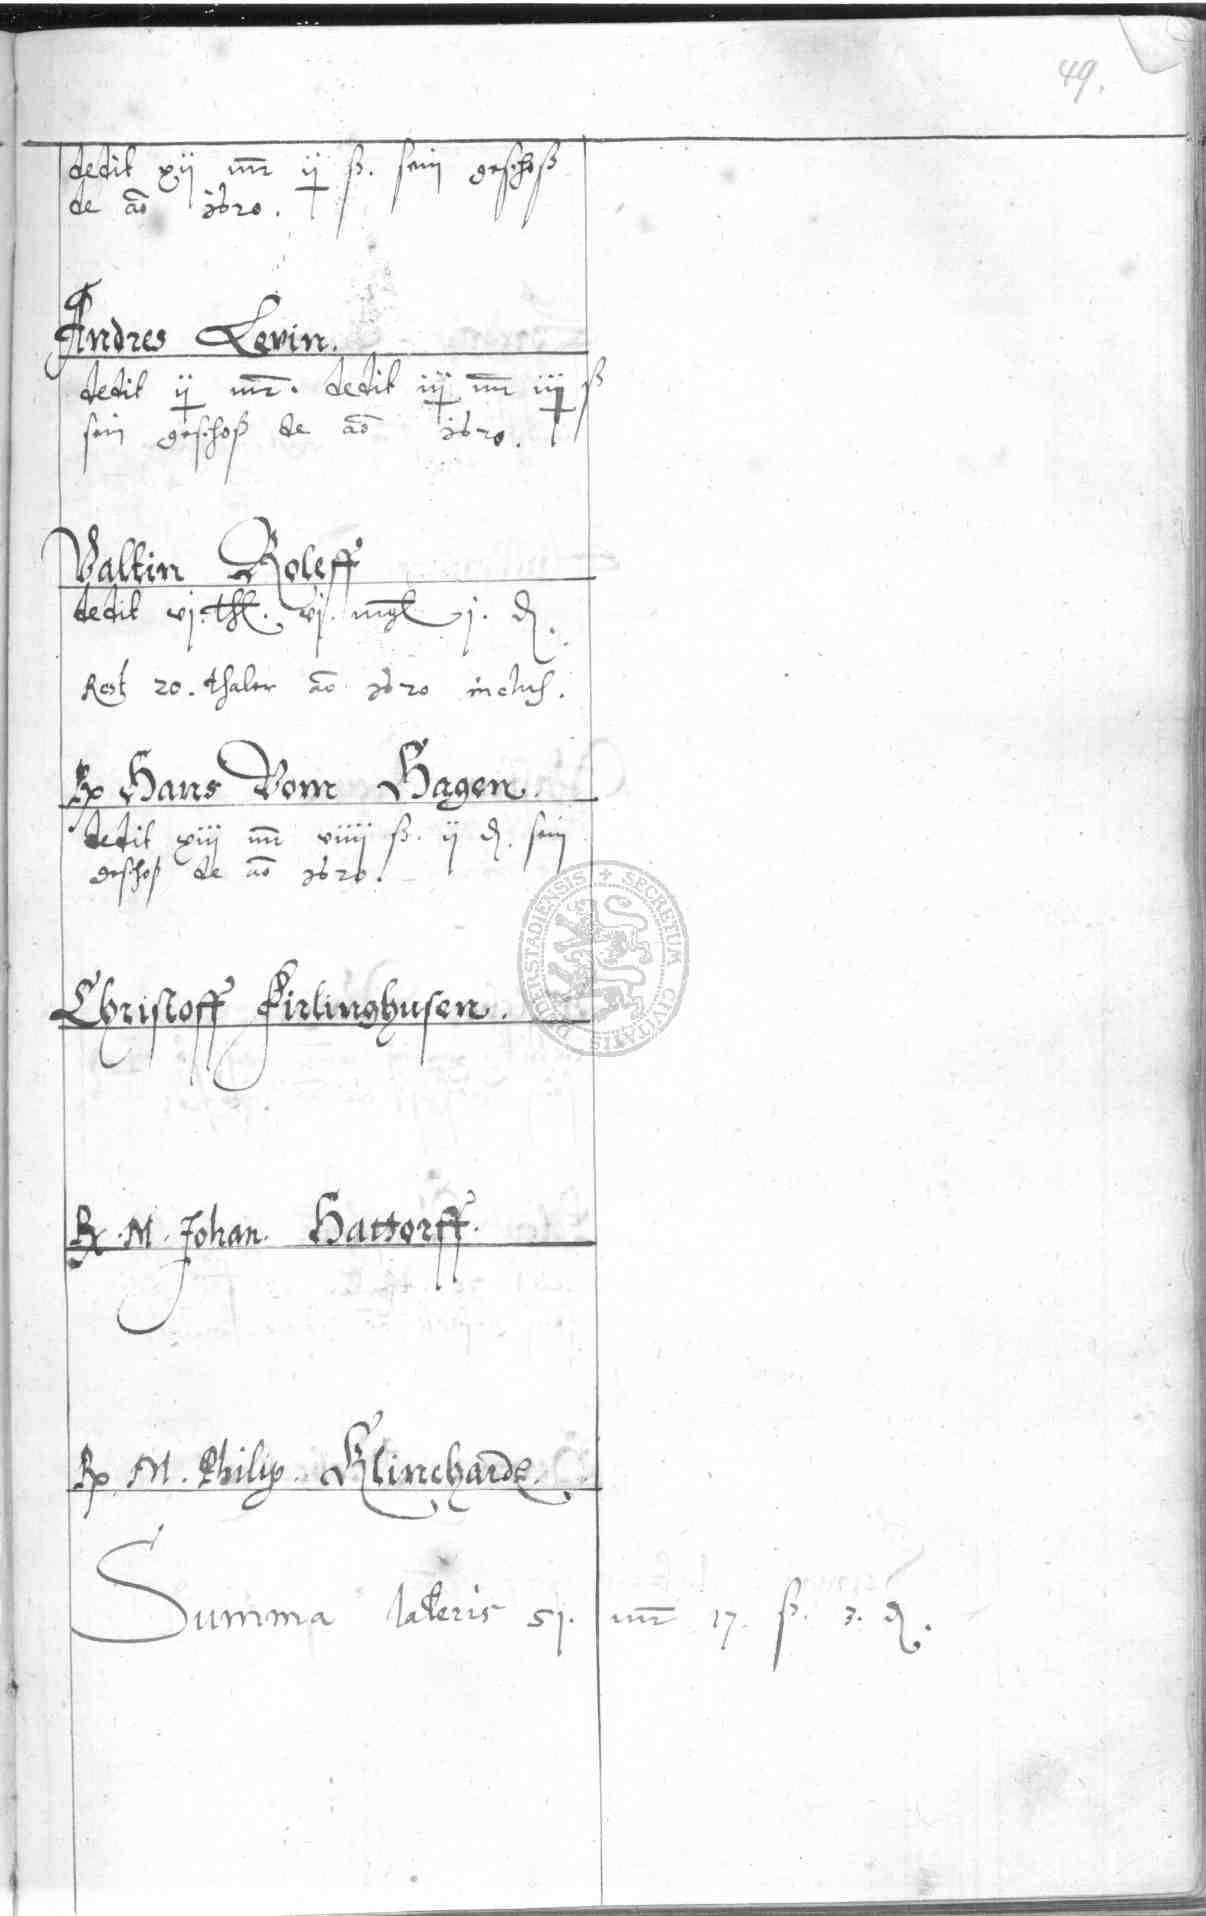 49.
dedit xij mr ij ß. sein geschoß
de ao 1620.
Andres Levin.
dedit ij mr. dedit iij mr iij ß
sein geschoß de ao 1620.
Valtin Roleff
dedit vj. thl. vj. mgl j. d.
Rest 20. thaler ao 1620 inclus.
Hans Vom Hagen.
dedit xiij mr viiij ß. ij d. sein
geschoß de ao 1620.
Christoff Firlinghusen.
M. Johan. Hattorff.
M. Philip. Klinchardt.
Summa lateris 51. mr 17. ß. 3. d.
SECRETUM CIVITATIS DUDERSTADIENSIS